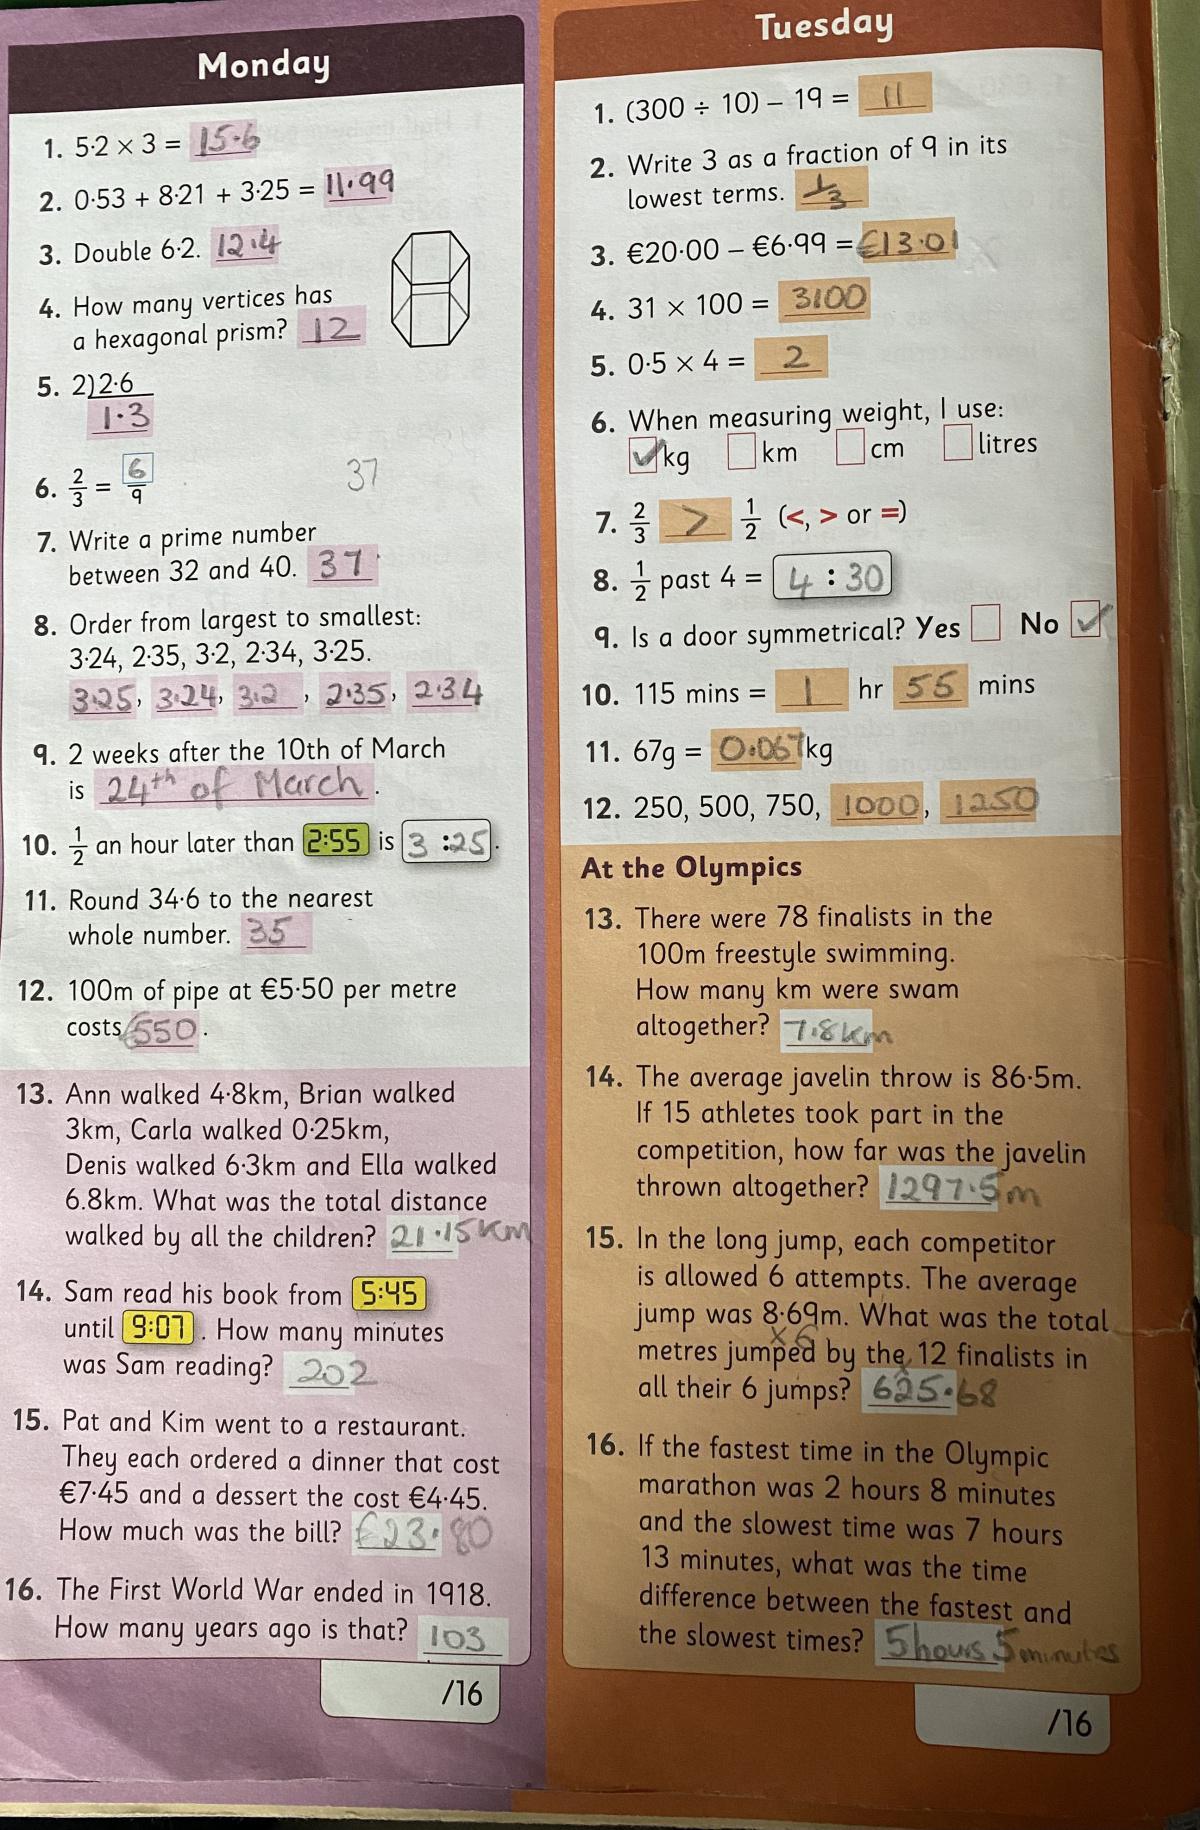 Monday
1. 5·2 × 3 = 15·6
2. 0·53 + 8·21 + 3·25 = 11·99
3. Double 6·2. 12·4
4. How many vertices has
a hexagonal prism? 12
5. 2)2·6
1·3
6. 2/3 = 6/9
37
7. Write a prime number
between 32 and 40. 37
8. Order from largest to smallest:
3·24, 2·35, 3·2, 2·34, 3·25.
3·25, 3·24, 3·2, 2·35, 2·34
9. 2 weeks after the 10th of March
is 24th of March.
10. 1/2 an hour later than 2:55 is 3:25.
11. Round 34·6 to the nearest
whole number. 35
12. 100m of pipe at €5·50 per metre
costs €550.
13. Ann walked 4·8km, Brian walked
3km, Carla walked 0·25km,
Denis walked 6·3km and Ella walked
6.8km. What was the total distance
walked by all the children? 21·15km
14. Sam read his book from 5:45
until 9:07. How many minutes
was Sam reading? 202
15. Pat and Kim went to a restaurant.
They each ordered a dinner that cost
€7·45 and a dessert the cost €4·45.
How much was the bill? €23·80
16. The First World War ended in 1918.
How many years ago is that? 103
/16
Tuesday
1. (300 ÷ 10) – 19 = 11
2. Write 3 as a fraction of 9 in its
lowest terms. 1/3
3. €20·00 – €6·99 = €13·01
4. 31 × 100 = 3100
5. 0·5 × 4 = 2
6. When measuring weight, I use:
✓ kg km cm litres
7. 2/3 > 1/2 (<, > or =)
8. 1/2 past 4 = 4:30
9. Is a door symmetrical? Yes No ✓
10. 115 mins = 1 hr 55 mins
11. 67g = 0.067kg
12. 250, 500, 750, 1000, 1250
At the Olympics
13. There were 78 finalists in the
100m freestyle swimming.
How many km were swam
altogether? 7.8km
14. The average javelin throw is 86·5m.
If 15 athletes took part in the
competition, how far was the javelin
thrown altogether? 1297·5m
15. In the long jump, each competitor
is allowed 6 attempts. The average
jump was 8·69m. What was the total
×6
metres jumped by the 12 finalists in
all their 6 jumps? 625·68
16. If the fastest time in the Olympic
marathon was 2 hours 8 minutes
and the slowest time was 7 hours
13 minutes, what was the time
difference between the fastest and
the slowest times? 5 hours 5 minutes
/16